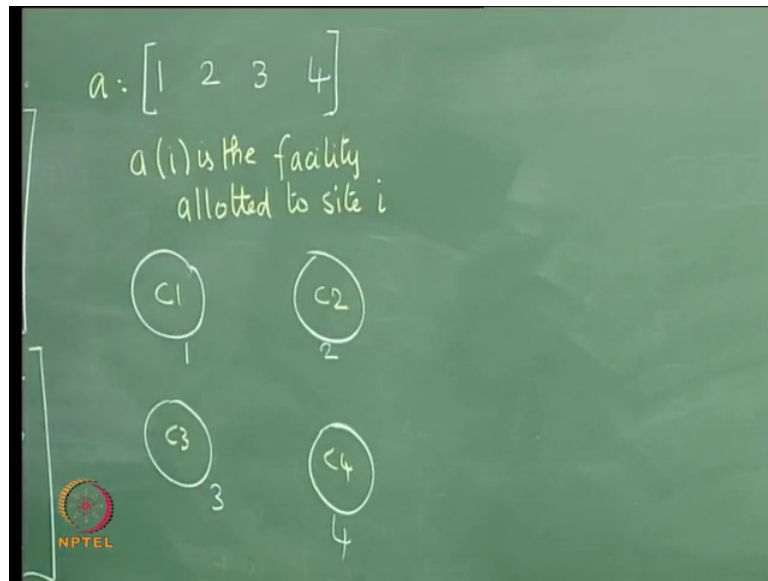 a : [1 2 3 4]
a(i) is the facility
allotted to site i
C1 C2
1 2
C3 C4
3 4
NPTEL